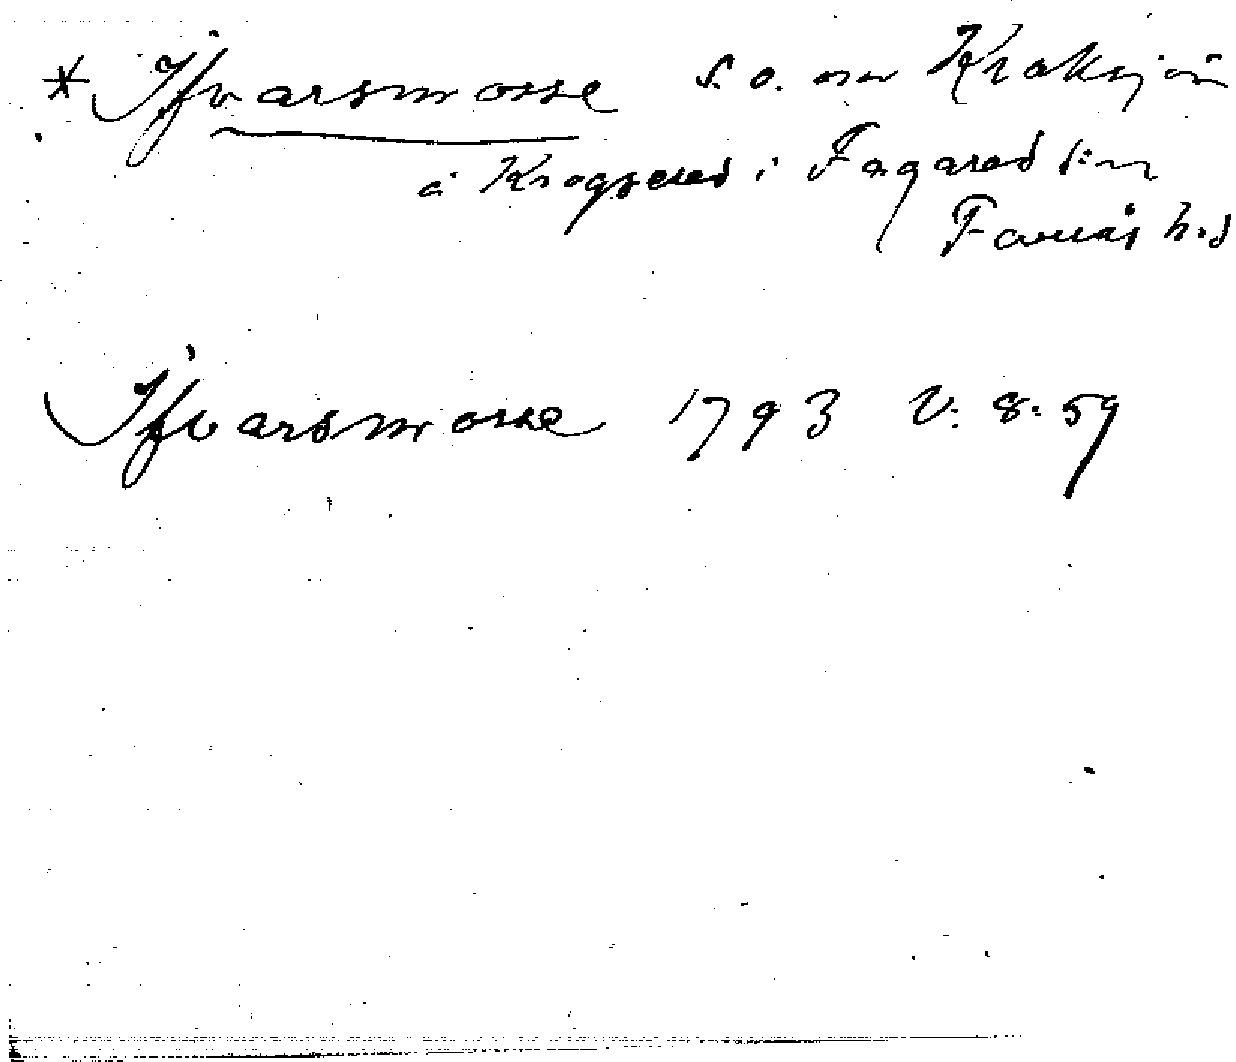 * Ifvarsmosse S.O. om Kraksjön
å Krogsered i Fagared s:n
Faurås h:d
Ifvarsmosse 1793 V: 8: 59